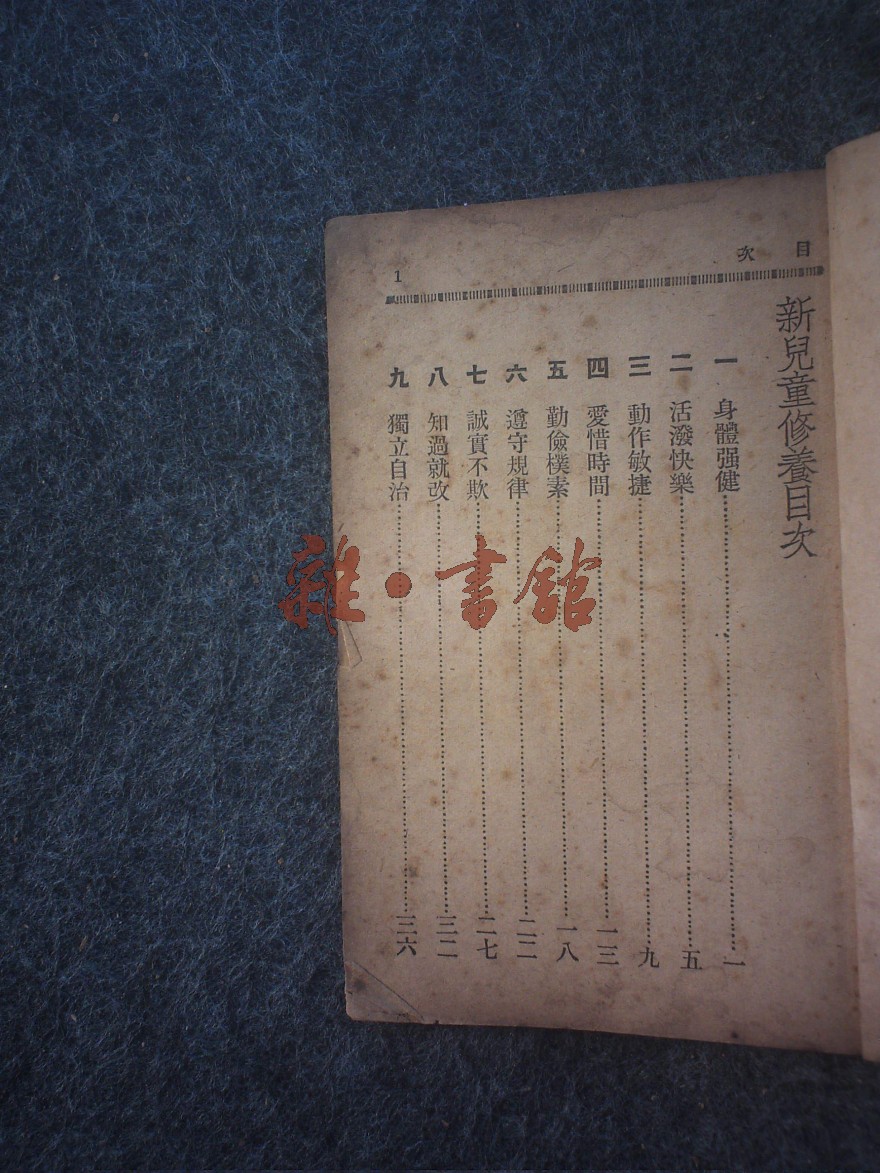 目次
1
新兒童修養目次
一 身體强健 一
二 活潑快樂 五
三 動作敏捷 九
四 愛惜時間 一三
五 勤儉樸素 一八
六 遵守規律 二二
七 誠實不欺 二七
八 知過就改 三二
九 獨立自治 三六
雜·書館